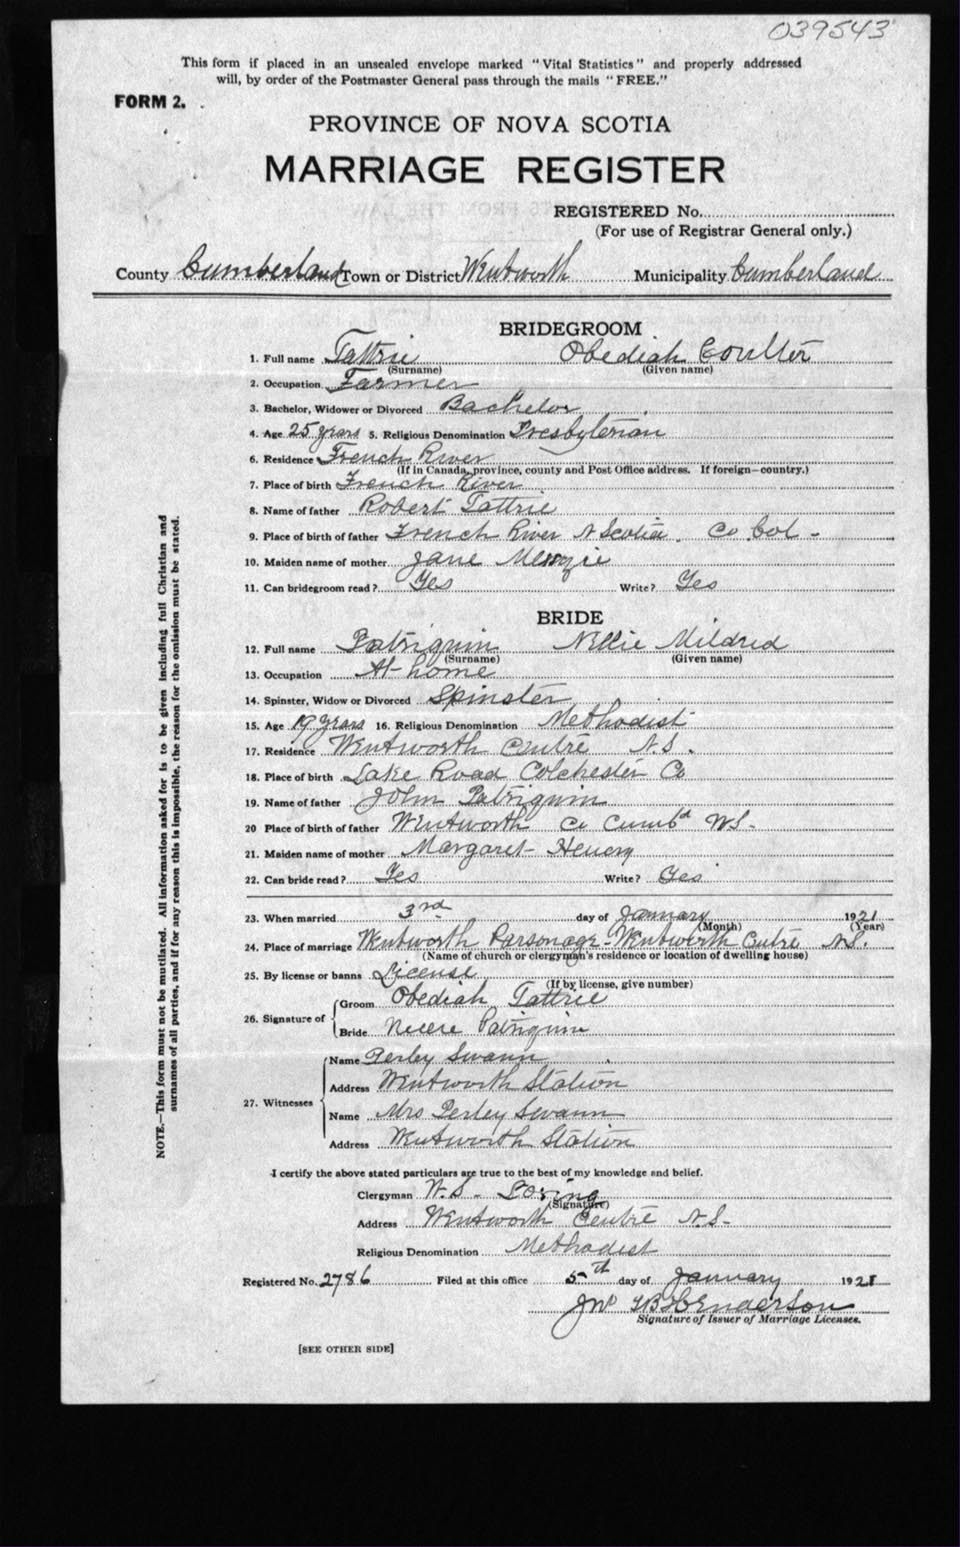 039543
This form if placed in an unsealed envelope marked "Vital Statistics" and properly addressed
will, by order of the Postmaster General pass through the mails "FREE."
FORM 2.
PROVINCE OF NOVA SCOTIA
MARRIAGE REGISTER
REGISTERED No.
(For use of Registrar General only.)
County Cumberland Town or District Wentworth Municipality Cumberland
BRIDEGROOM
1. Full name Tattrie Obediah Coulter
(Surname) (Given name)
2. Occupation Farmer
3. Bachelor, Widower or Divorced Bachelor
4. Age 25 years 5. Religious Denomination Presbyterian
6. Residence French River
(If in Canada, province, county and Post Office address. If foreign—country.)
7. Place of birth French River
8. Name of father Robert Tattrie
9. Place of birth of father French River N Scotia. Co Col -
10. Maiden name of mother Jane Menzie
11. Can bridegroom read? Yes Write? Yes
BRIDE
12. Full name Patriquin Nellie Mildred
(Surname) (Given name)
13. Occupation At home
14. Spinster, Widow or Divorced Spinster
15. Age 19 years 16. Religious Denomination Methodist
17. Residence Wentworth Centre N.S.
18. Place of birth Lake Road Colchester Co
19. Name of father John Patriquin
20 Place of birth of father Wentworth Co Cumbd NS-
21. Maiden name of mother Margaret
22. Can bride read? Yes Write? Yes
23. When married 3rd day of January 1921
(Month) (Year)
24. Place of marriage Wentworth Parsonage - Wentworth Centre N.S.
(Name of church or clergyman's residence or location of dwelling house)
25. By license or banns License
(If by license, give number)
26. Signature of Groom Obediah Tattrie
Bride Nellie Patriquin
27. Witnesses Name Perley Swann
Address Wentworth Station
Name Mrs Perley Swann
Address Wentworth Station
I certify the above stated particulars are true to the best of my knowledge and belief.
Clergyman W.S.
(Signature)
Address Wentworth Centre N.S-
Religious Denomination Methodist
Registered No. 2786 Filed at this office 5th day of January 1921
Jno Henderson
Signature of Issuer of Marriage Licenses.
[SEE OTHER SIDE]
NOTE.—This form must not be mutilated. All information asked for is to be given including full Christian and
surnames of all parties, and if for any reason this is impossible, the reason for the omission must be stated.